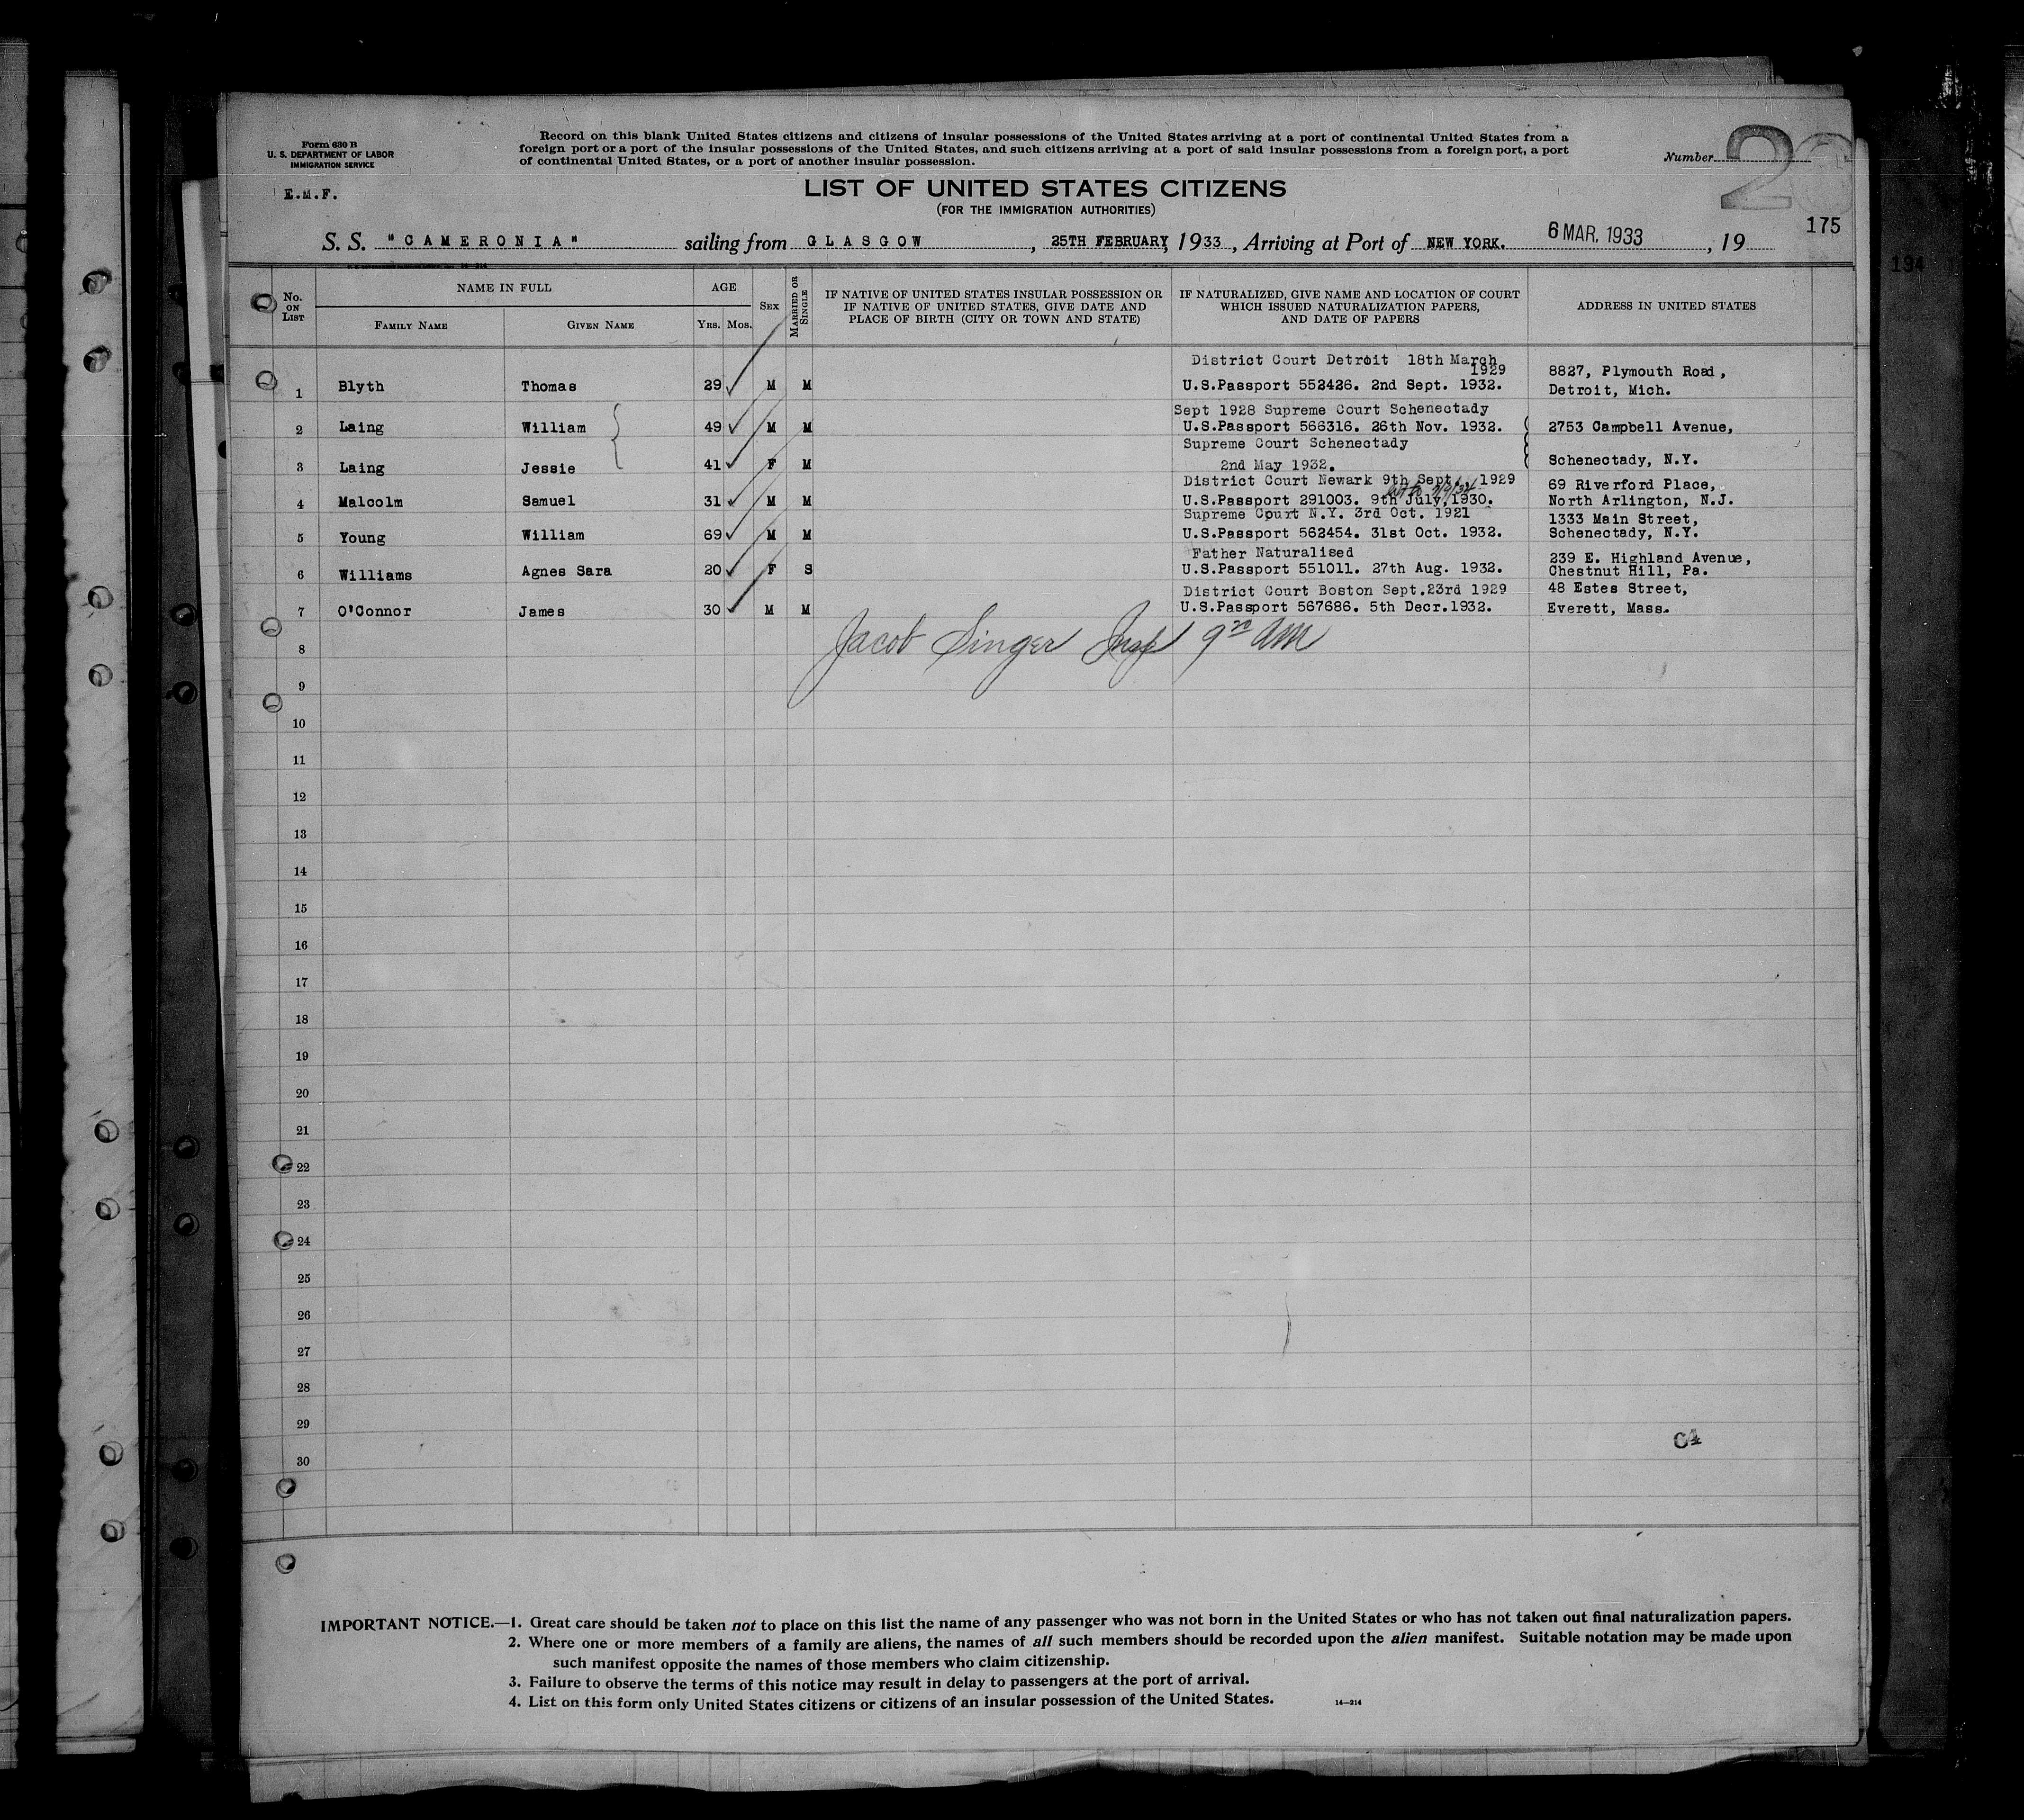 Form 630 B
U. S. DEPARTMENT OF LABOR
IMMIGRATION SERVICE
E.M.F.
Record on this blank United States citizens and citizens of insular possessions of the United States arriving at a port of continental United States from a
foreign port or a port of the insular possessions of the United States, and such citizens arriving at a port of said insular possessions from a foreign port, a port
of continental United States, or a port of another insular possession.
Number 2
LIST OF UNITED STATES CITIZENS
(FOR THE IMMIGRATION AUTHORITIES)
175
S. S. "CAMERONIA" sailing from GLASGOW, 25TH FEBRUARY, 1933, Arriving at Port of NEW YORK. 6 MAR. 1933, 19
194
No. ON LIST
NAME IN FULL
FAMILY NAME
GIVEN NAME
AGE
YRS. MOS.
SEX
MARRIED OR SINGLE
IF NATIVE OF UNITED STATES INSULAR POSSESSION OR
IF NATIVE OF UNITED STATES, GIVE DATE AND
PLACE OF BIRTH (CITY OR TOWN AND STATE)
IF NATURALIZED, GIVE NAME AND LOCATION OF COURT
WHICH ISSUED NATURALIZATION PAPERS,
AND DATE OF PAPERS
ADDRESS IN UNITED STATES
District Court Detroit 18th March 1929
1 Blyth Thomas 29 M M U.S.Passport 552426. 2nd Sept. 1932. 8827, Plymouth Road,
Detroit, Mich.
Sept 1928 Supreme Court Schenectady
2 Laing William 49 M M U.S.Passport 566316. 26th Nov. 1932. 2753 Campbell Avenue,
Supreme Court Schenectady
3 Laing Jessie 41 F M 2nd May 1932. Schenectady, N.Y.
District Court Newark 9th Sept., 1929 69 Riverford Place,
4 Malcolm Samuel 31 M M U.S.Passport 291003. 9th July, 1930. North Arlington, N.J.
Supreme Court N.Y. 3rd Oct. 1921 1333 Main Street,
5 Young William 69 M M U.S.Passport 562454. 31st Oct. 1932. Schenectady, N.Y.
Father Naturalised 239 E. Highland Avenue,
6 Williams Agnes Sara 20 F S U.S.Passport 551011. 27th Aug. 1932. Chestnut Hill, Pa.
District Court Boston Sept.23rd 1929 48 Estes Street,
7 O'Connor James 30 M M U.S.Passport 567686. 5th Decr.1932. Everett, Mass.
8 Jacob Singer Insp 9 AM
9
10
11
12
13
14
15
16
17
18
19
20
21
22
23
24
25
26
27
28
29
C4
30
IMPORTANT NOTICE.—1. Great care should be taken not to place on this list the name of any passenger who was not born in the United States or who has not taken out final naturalization papers.
2. Where one or more members of a family are aliens, the names of all such members should be recorded upon the alien manifest. Suitable notation may be made upon
such manifest opposite the names of those members who claim citizenship.
3. Failure to observe the terms of this notice may result in delay to passengers at the port of arrival.
4. List on this form only United States citizens or citizens of an insular possession of the United States.
14—214